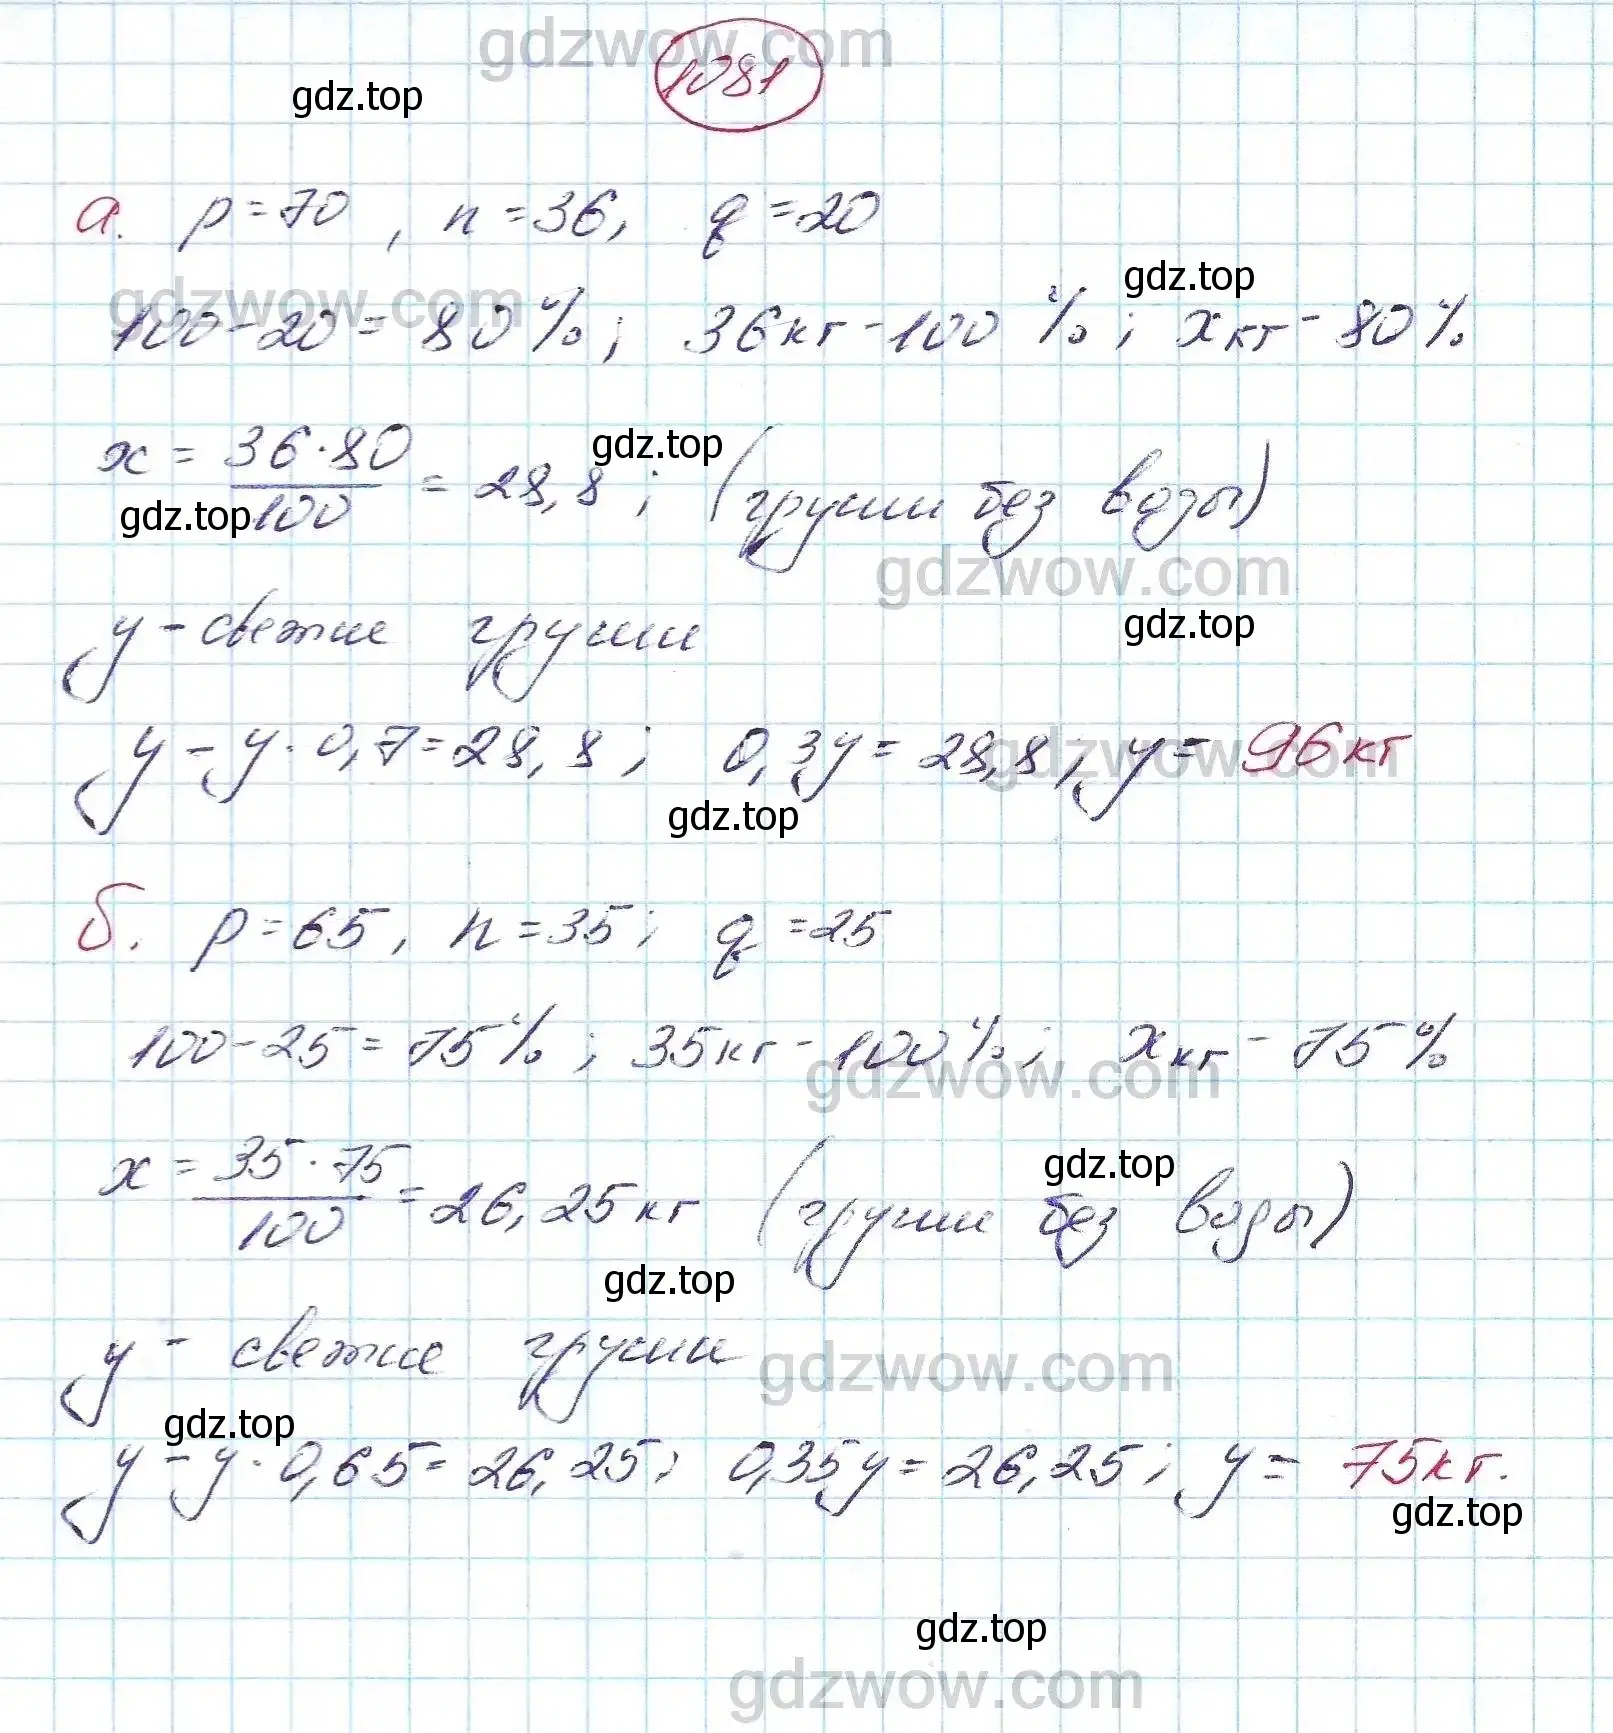 gdzwow.com
1081
gdz.top
а. p=70, n=36, q=20
gdz.top
gdzwow.com
100-20=80%; 36кг-100%; xкг-80%
gdz.top
x = 36·80/100 = 28,8; (груши без воды)
gdz.top
gdzwow.com
gdz.top
y-свежие груши
y-y·0,7=28,8; 0,3y=28,8; y= 96кг
gdzwow.com
gdz.top
б. p=65, n=35; q=25
100-25=75%; 35кг-100%; xкг-75%
gdzwow.com
gdz.top
x = 35·75/100 = 26,25кг (груши без воды)
gdz.top
y- свежие груши
gdzwow.com
gdz.top
y-y·0,65=26,25; 0,35y=26,25; y= 75кг.
gdz.top
gdz.top
gdzwow.com